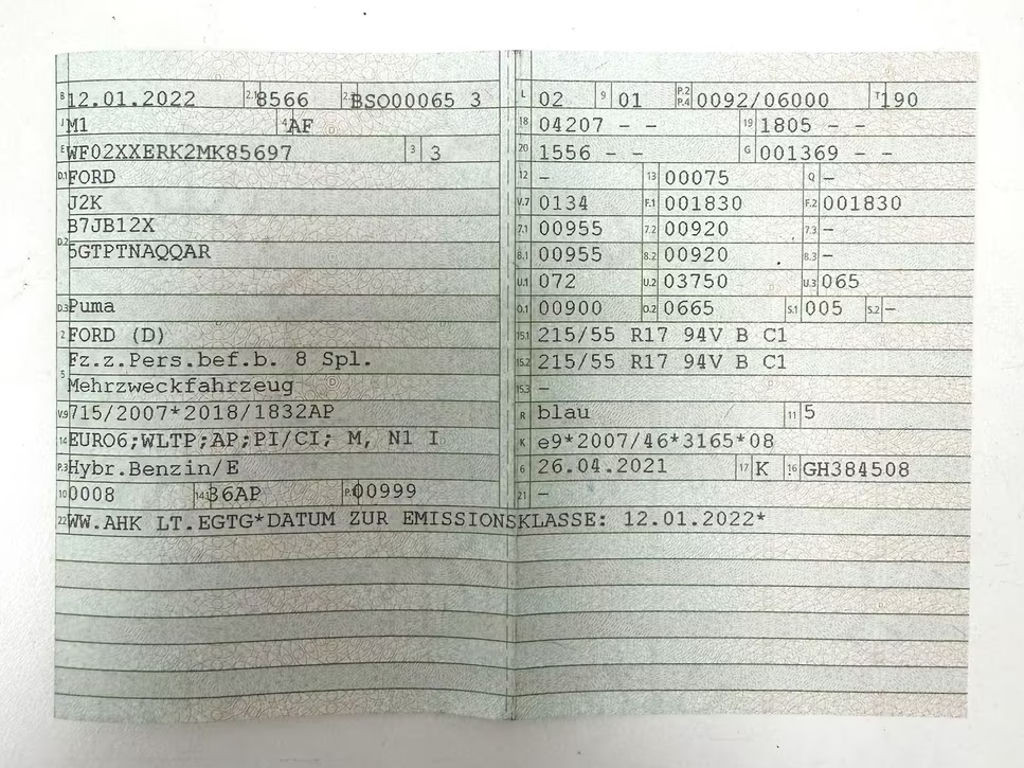 B 12.01.2022 2.1 8566 2.2 BSO00065 3
J M1 4 AF
E WF02XXERK2MK85697 3 3
D.1 FORD
J2K
D.2 B7JB12X
5GTPTNAQQAR
D.3 Puma
2 FORD (D)
5 Fz.z.Pers.bef.b. 8 Spl.
Mehrzweckfahrzeug
V.9 715/2007*2018/1832AP
14 EURO6;WLTP;AP;PI/CI; M, N1 I
P.3 Hybr.Benzin/E
10 0008 14.1 36AP P.1 00999
L 02 9 01 P.2 P.4 0092/06000 T 190
18 04207 - - 19 1805 - -
20 1556 - - G 001369 - -
12 - 13 00075 Q -
V.7 0134 F.1 001830 F.2 001830
7.1 00955 7.2 00920 7.3 -
8.1 00955 8.2 00920 8.3 -
U.1 072 U.2 03750 U.3 065
O.1 00900 O.2 0665 S.1 005 S.2 -
15.1 215/55 R17 94V B C1
15.2 215/55 R17 94V B C1
15.3 -
R blau 11 5
K e9*2007/46*3165*08
6 26.04.2021 17 K 16 GH384508
21 -
22 WW.AHK LT.EGTG*DATUM ZUR EMISSIONSKLASSE: 12.01.2022*